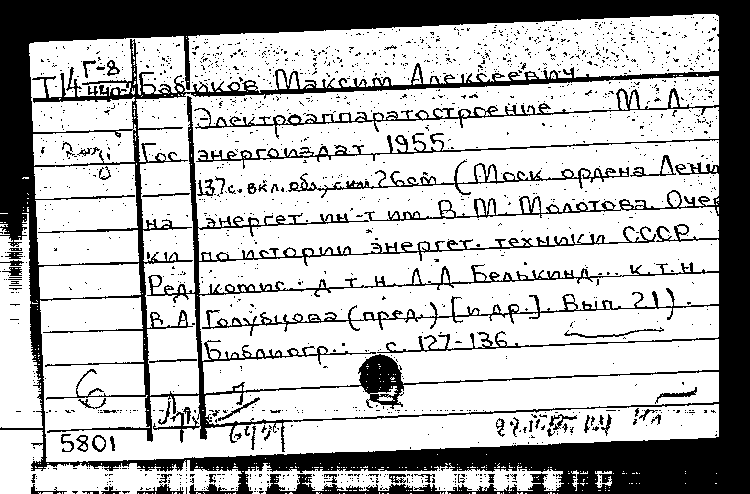 Т14 Г-8 Бабиков Максим Алексеевич.
Электроаппаратостроение. М.-Л.,
Гос энергоиздат, 1955.
137с. вкл. обл., илл. 26см (Моск. ордена Лени
на энергет. ин-т им В. М. Молотова. Очер
ки по истории энергет. техники СССР.
Ред. комис.: д. т. н. Л. Д Белькинд,.. к. т. н.
В. А. Голубцова (пред.) [и др.]. Вып. 21).
Библиогр.: с. 127-136.
6
5801